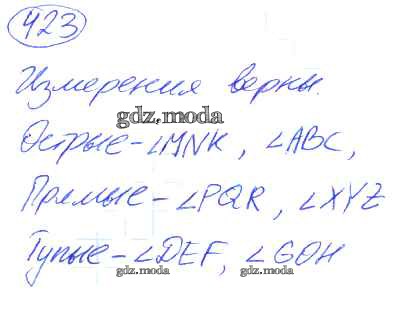 423
Измерения верны.
gdz.moda
Острые - ∠MNK, ∠ABC,
Прямые - ∠PQR, ∠XYZ
Тупые - ∠DEF, ∠GOH
gdz.moda gdz.moda